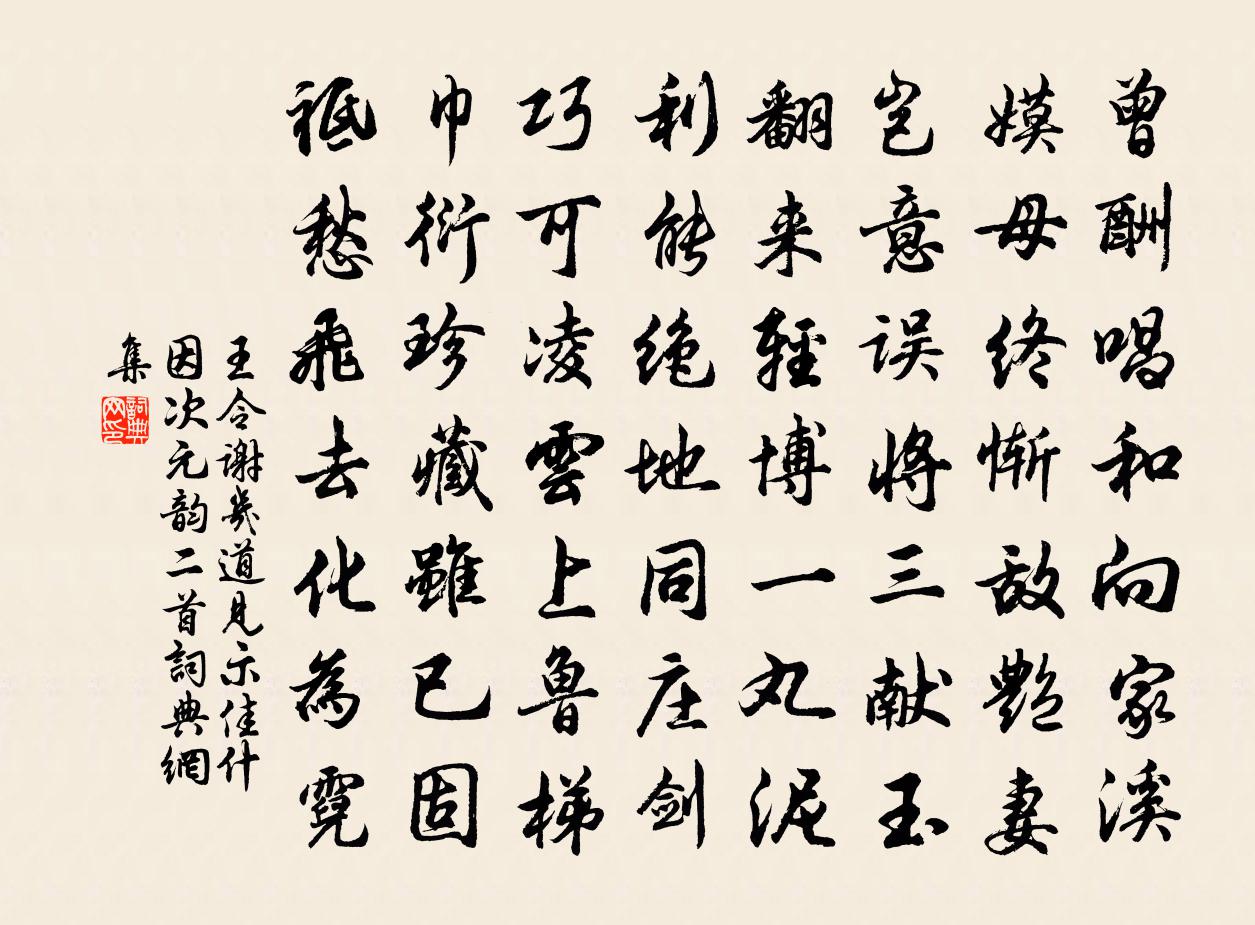 曾酬唱和向家溪
嫫母终惭敌艶妻
岂意误将三献玉
翻来轻博一丸泥
利能绝地同庄剑
巧可凌雲上鲁梯
巾衍珍藏雖已固
祗愁飛去化為霓
王令谢幾道见示佳什
因次元韵二首詞典網
集
詞典网印